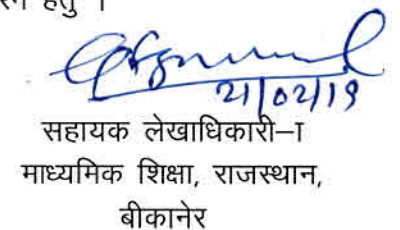 हेतु ।
21/02/19
सहायक लेखाधिकारी–I
माध्यमिक शिक्षा, राजस्थान,
बीकानेर